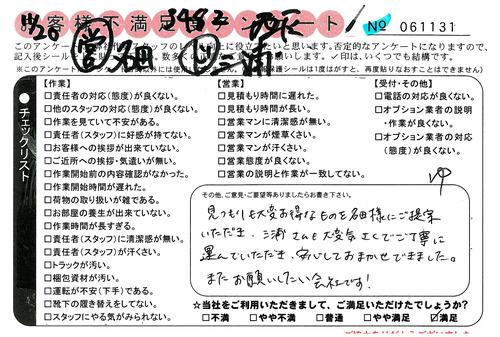 お客様不満足度アンケート
No 061131
記入後シールを
【作業】
□責任者の対応(態度)が良くない。
□他のスタッフの対応(態度)が良くない。
□作業を見ていて不安がある。
□責任者(スタッフ)に好感が持てない。
□お客様への挨拶が出来ていない。
□ご近所への挨拶・気遣いが無い。
□作業開始前の内容確認がなかった。
□作業開始時間が遅れた。
□荷物の取り扱いが雑である。
□お部屋の養生が出来ていない。
□作業時間が長すぎる。
□責任者(スタッフ)に清潔感が無い。
□責任者(スタッフ)が汗くさい。
□トラックが汚い。
□梱包資材が汚い。
□運転が不安(下手)である。
□靴下の履き替えをしてない。
□スタッフにやる気がみられない。
【営業】
□見積もり時間に遅れた。
□見積もり時間が長い。
□営業マンに清潔感が無い。
□営業マンが煙草くさい。
□営業マンが汗くさい。
□営業態度が良くない。
□営業の説明と作業が一致してない。
【受付・その他】
□電話の対応が良くない。
□オプション業者の説明
・作業が良くない。
□オプション業者の対応
(態度)が良くない。
チェックリスト
その他、ご意見・ご要望等ありましたらお書き下さい。
見つもりも大変お得なものを名畑様にご提案
いただき、三浦さんも大変気さくでご丁寧に
運んでいただき、安心しておまかせできました。
またお願いしたい会社です!
☆当社をご利用いただきまして、ご満足いただけたでしょうか?
□不満 □やや不満 □普通 □やや満足 ☑満足